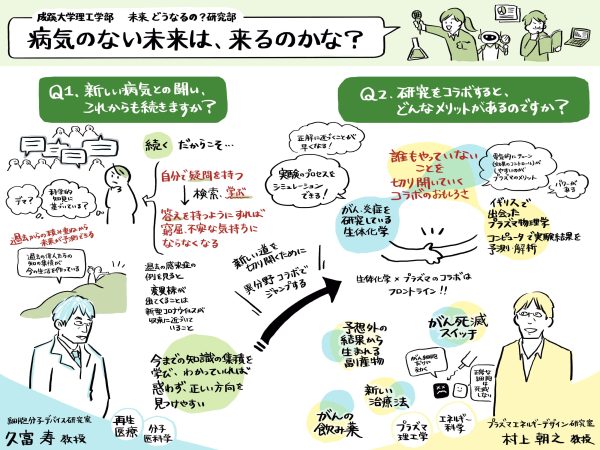 成蹊大学理工学部 未来、どうなるの?研究部
病気のない未来は、来るのかな?
Q1. 新しい病気との闘い、
これからも続きますか?
続く だからこそ…
自分で疑問を持つ
検索、学ぶ
答えを持つようにすれば
窮屈、不安な気持ちに
ならなくなる
デマ?
科学的
知見に
基づいている?
過去からの積み重ねから
未来が予測できる
過去の偉人たちの
知の集積が
今の生活を作っている
過去の感染症の
例を見ると
変異株が
出てくることは
新型コロナウイルスが
収束に近づいて
いること
今までの知識の集積を
学び、わかっていれば
惑わず正しい方向を
見つけやすい
細胞分子デバイス研究室
久富 寿 教授
再生
医療
分子
医科学
新しい道を
切り開くために
異分野コラボで
ジャンプする
Q2. 研究をコラボすると、
どんなメリットがあるのですか?
正解に近づくことが
早くなる!
実験のプロセスを
シミュレーション
できる!
誰もやっていない
ことを
切り開いていく
コラボのおもしろさ
しやすいのが
プラズマのメリット
パワーが
ある
がん、炎症を
研究している
生体化学
イギリスで
出会った
プラズマ物理学
コンピュータで実験結果を
予測・解析
生体化学×プラズマのコラボは
フロントライン!!
予想外の
結果から
生まれる
副産物
がん死滅
スイッチ
がん細胞
だけに
効く
正常な
細胞は
死滅
しない
新しい
治療法
がんの
飲み薬
プラズマ
理工学
エネルギー
科学
プラズマエネルギーデザイン研究室
村上 朝之 教授